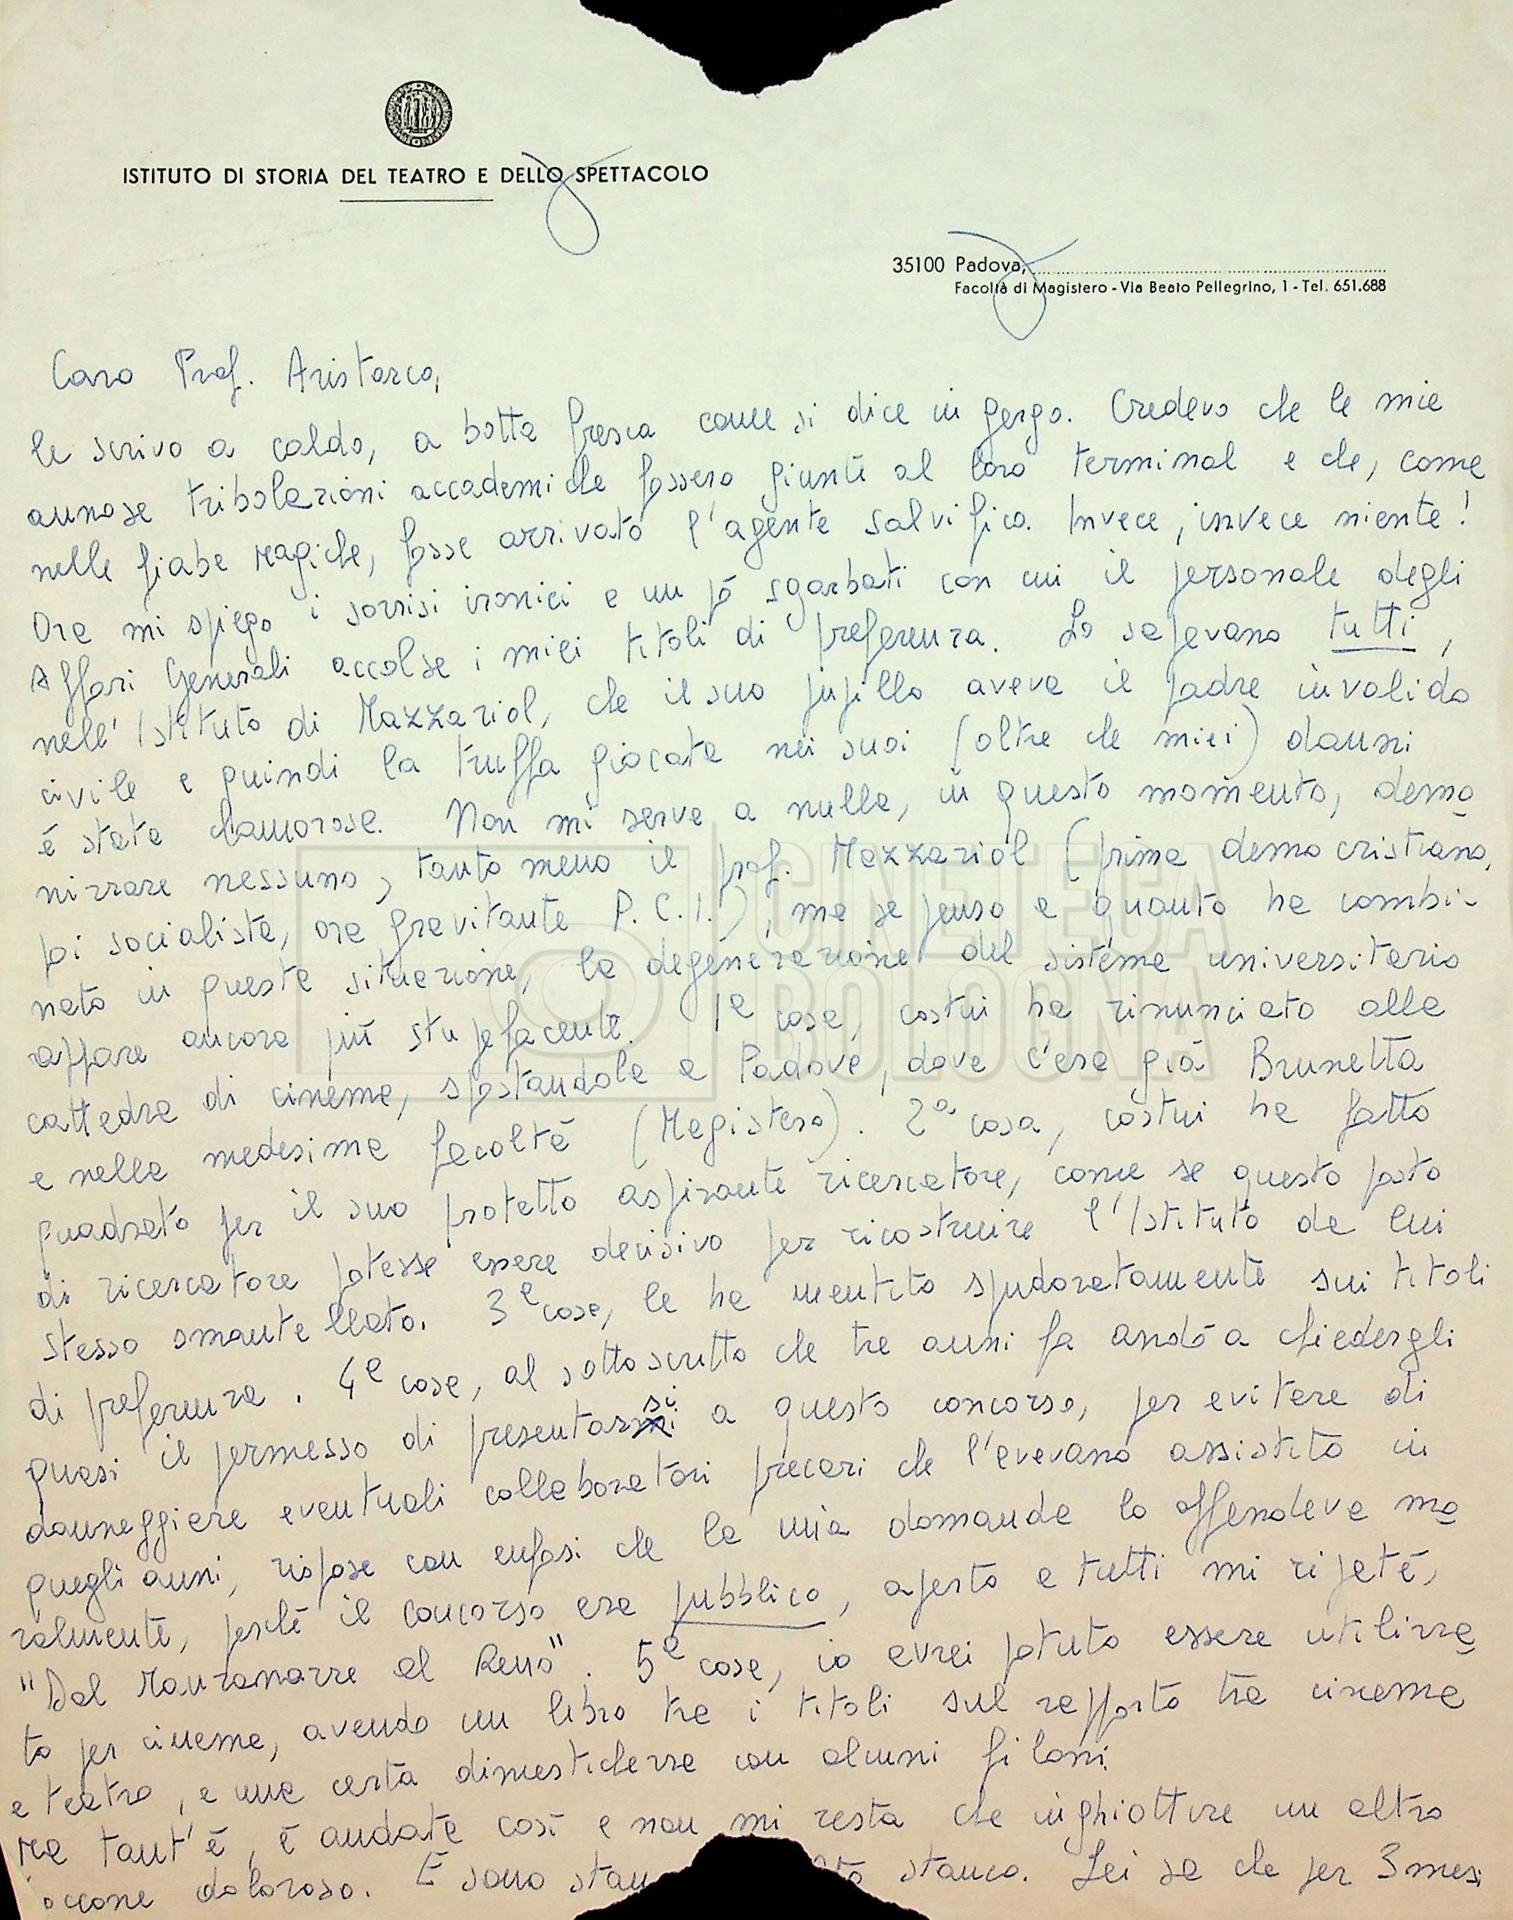 ISTITUTO DI STORIA DEL TEATRO E DELLO SPETTACOLO
35100 Padova,
Facoltà di Magistero - Via Beato Pellegrino, 1 - Tel. 651.688
Caro Prof. Aristarco,
le scrivo a caldo, a botta fresca come si dice in gergo. Credevo che le mie
annose tribolazioni accademiche fossero giunte al loro terminal e che, come
nelle fiabe magiche, fosse arrivato l'agente salvifico. Invece, invece niente!
Ora mi spiego i sorrisi ironici e un pò sgarbati con cui il personale degli
Affari Generali accolse i miei titoli di preferenza. Lo sapevano tutti,
nell'Istituto di Mazzariol, che il suo pupillo aveva il padre invalido
civile e quindi la truffa giocata nei suoi (oltre che miei) danni
è stata clamorosa. Non mi serve a nulla, in questo momento, demo
nizzare nessuno, tanto meno il prof. Mazzariol (prima democristiano,
poi socialista, ora gravitante P.C.I.), ma se penso a quanto ha combi-
nato in questa situazione, la degenerazione del sistema universitario
appare ancora più stupefacente. 1a cosa, costui ha rinunciato alla
cattedra di cinema, spostandola a Padova, dove c'era già Brunetta
e nella medesima facoltà (Magistero). 2a cosa, costui ha fatto
quadrato per il suo protetto aspirante ricercatore, come se questo posto
di ricercatore potesse essere decisivo per ricostruire l'Istituto da lui
stesso smantellato. 3a cosa, le ha mentito spudoratamente sui titoli
di preferenza. 4a cosa, al sottoscritto che tre anni fa andò a chiedergli
quasi il permesso di presentarsi a questo concorso, per evitare di
danneggiare eventuali collaboratori precari che l'avevano assistito in
quegli anni, rispose con enfasi che la mia domanda lo offendeva mo
ralmente, perché il concorso era pubblico, aperto a tutti mi ripeté,
"Dal Manzanarre al Reno". 5a cosa, io avrei potuto essere utilizza
to per cinema, avendo un libro tra i titoli sul rapporto tra cinema
e teatro, e una certa dimestichezza con alcuni filoni.
Ma tant'è, è andata così e non mi resta che inghiottire un altro
boccone doloroso. E sono stanco. Lei sa che per 3 mesi